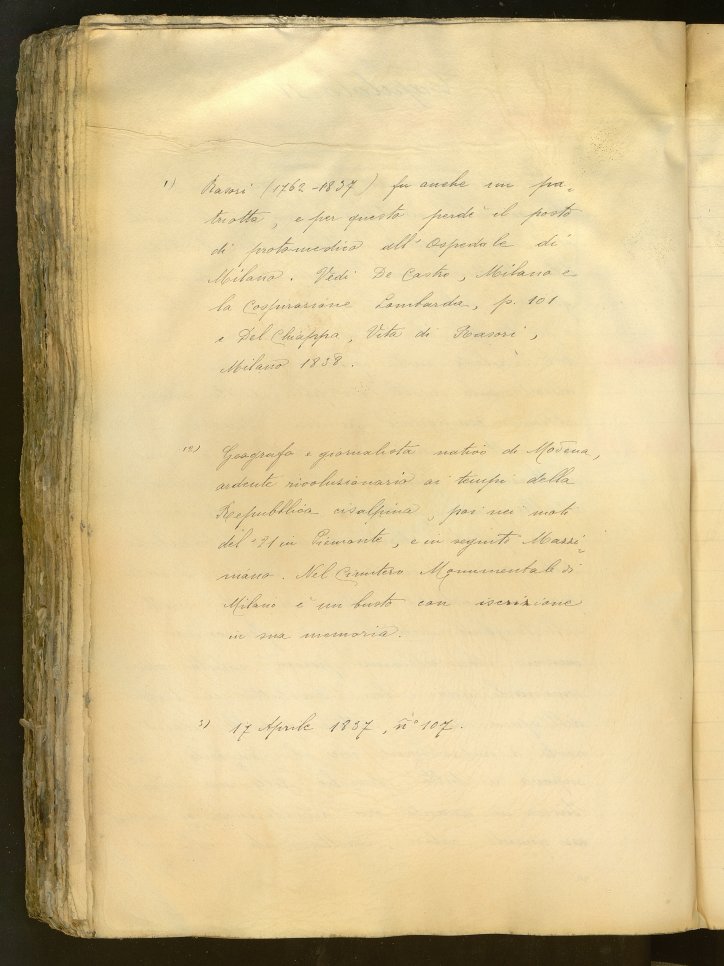 1) Rasori (1762-1837) fu anche un pa-
triotta, e per questo perdè il posto
di protomedico all'Ospedale di
Milano. Vedi De Castro, Milano e
la Cospirazione Lombarda, p. 101
e Del Chiappa, Vita di Rasori,
Milano 1838.
2) Geografo e giornalista nativo di Modena,
ardente rivoluzionario ai tempi della
Repubblica cisalpina, poi nei moti
del '21 in Piemonte, e in seguito Mazzi-
niano. Nel Cimitero Monumentale di
Milano è un busto con iscrizione
in sua memoria.
3) 17 Aprile 1837, n° 107.